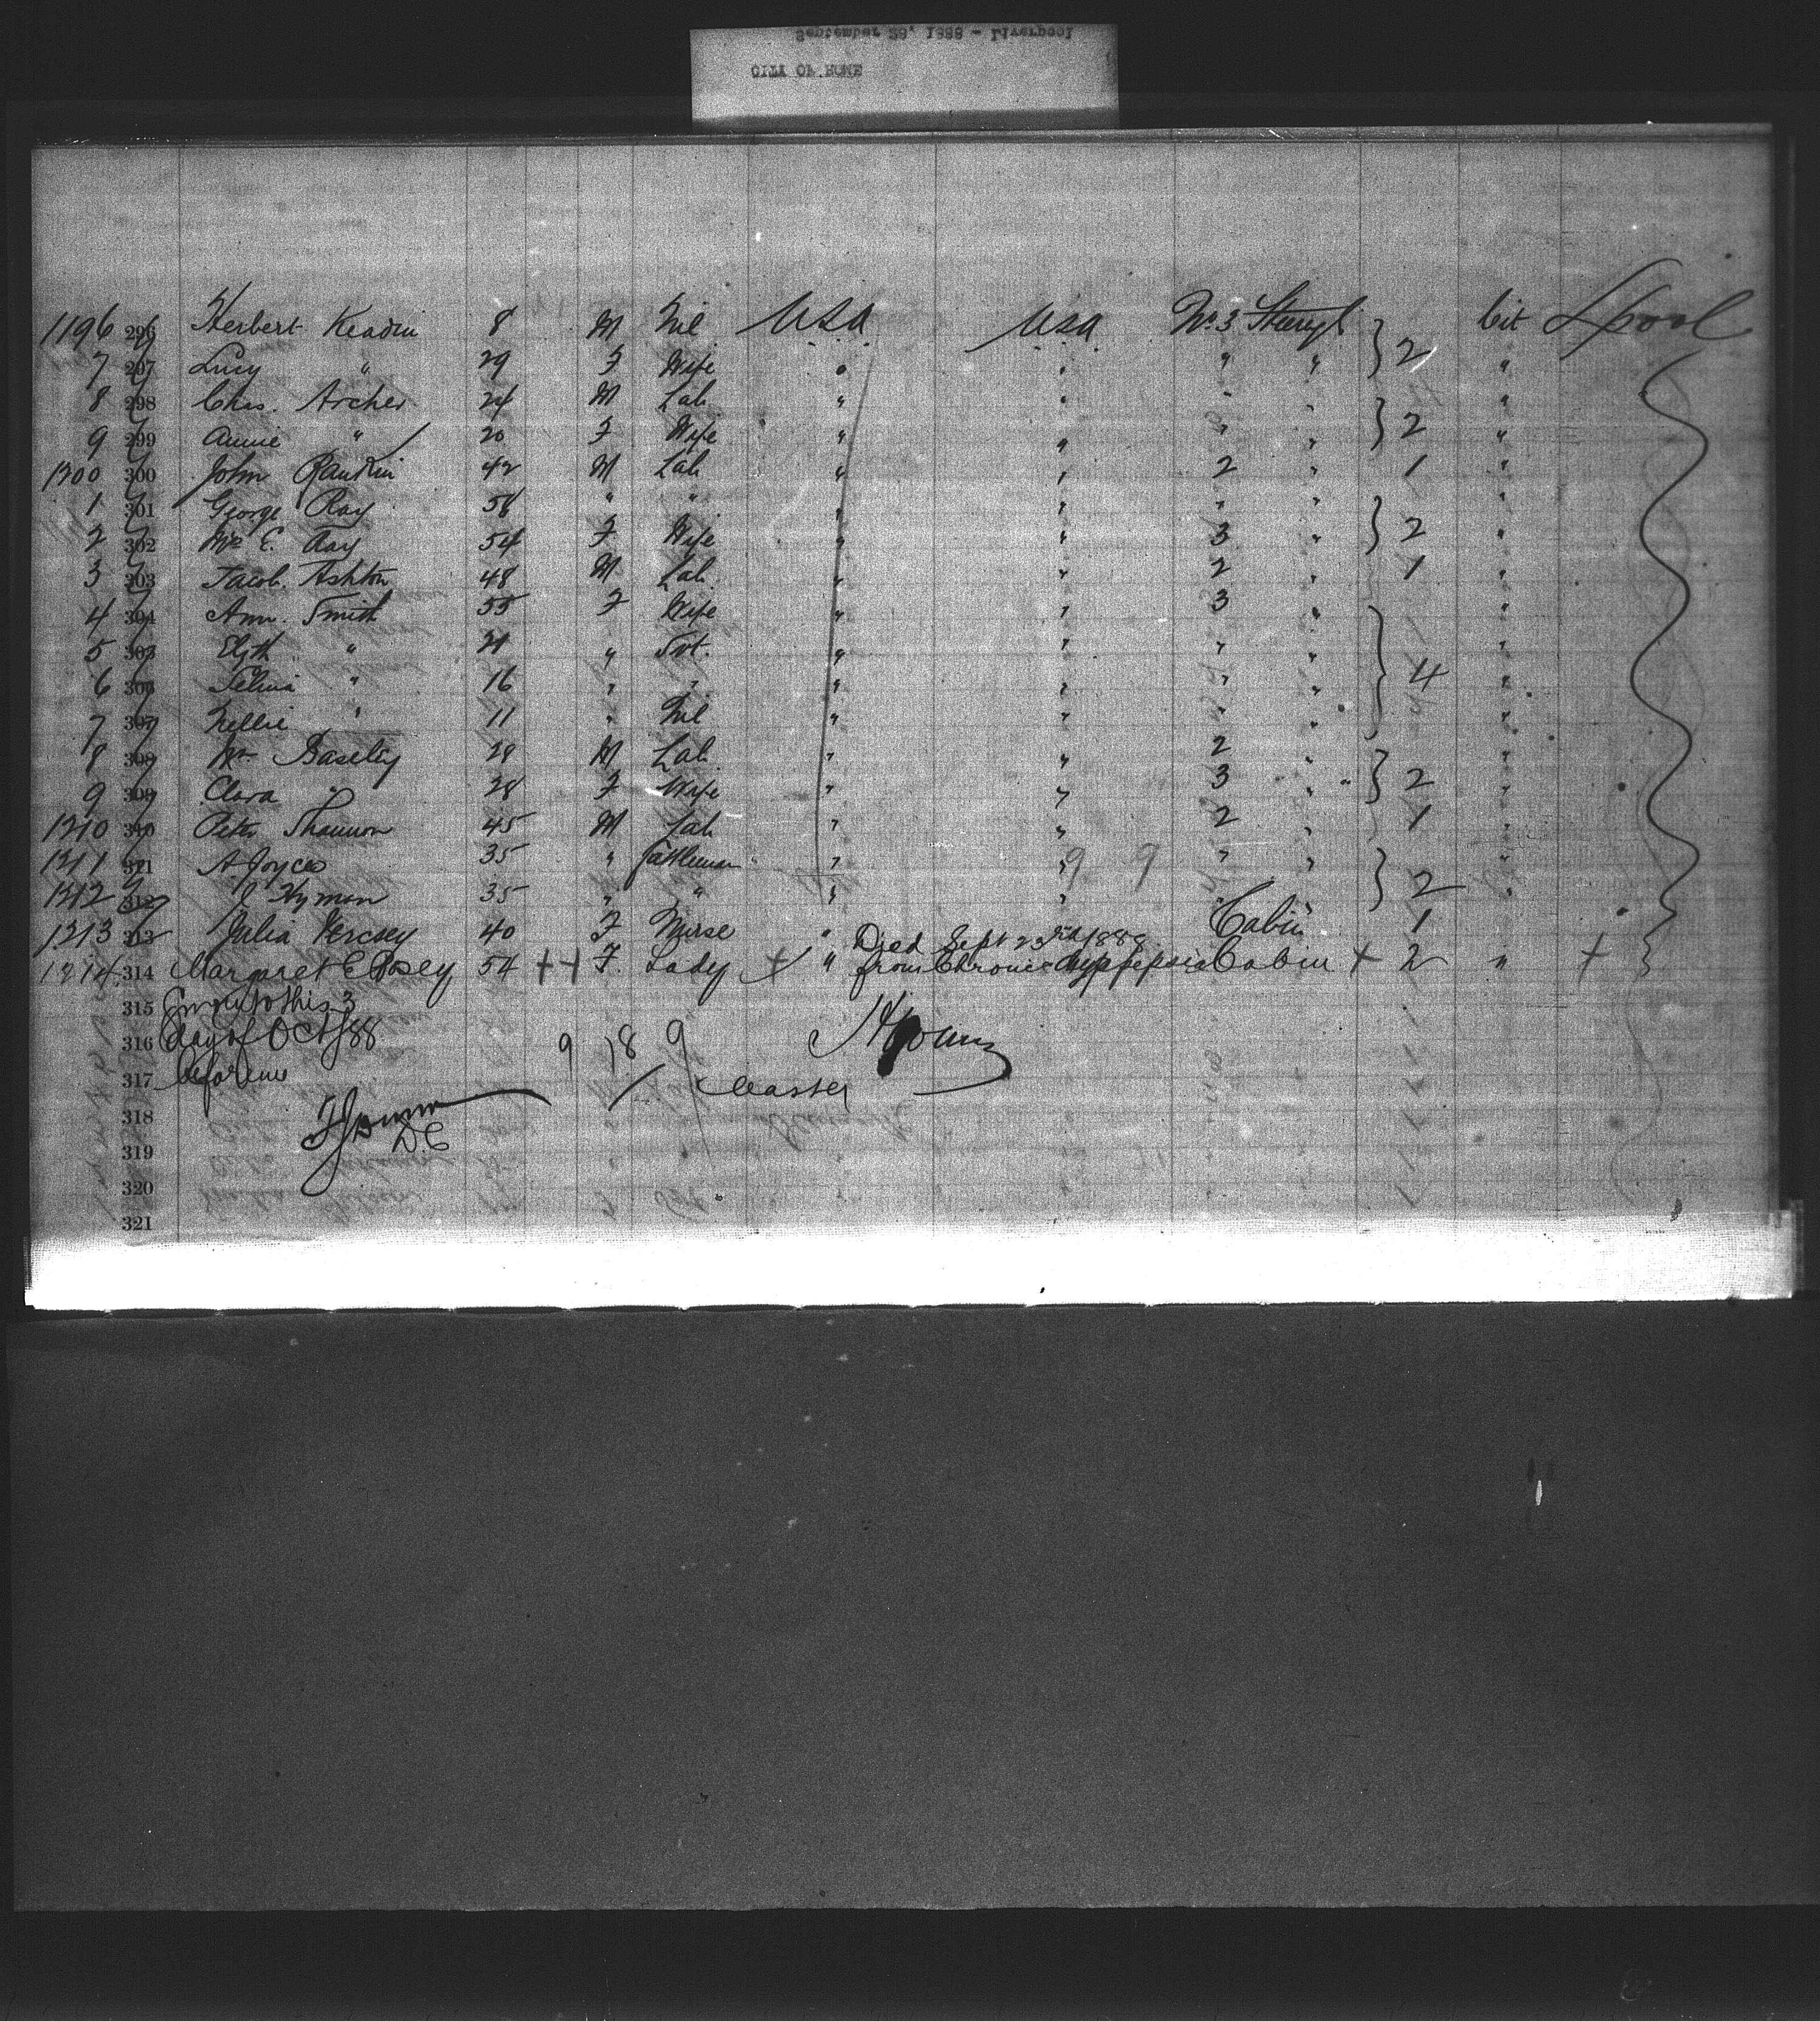 September 28, 1888 - Liverpool
CITY OF ROME
1196 296 Herbert 8 M Nil USA USA No 3 Cit L'pool
7 297 Lucy " 29 F Wife " " " " } 2 "
8 298 Chas. Archer 24 M Lab " " " " "
9 299 Annie " 20 F Wife " " " " } 2 "
1200 300 John Rankin 42 M Lab " " 2 " 1 "
1 301 George Ray 58 " " " " " " "
2 302 Mrs E. Ray 54 F Wife " " 3 " } 2 "
3 303 Jacob Ashton 48 M Lab " " 2 " 1 "
4 304 Ann Smith 55 F Wife " " 3 " "
5 305 Elzth " 21 " Svt. " " " " "
6 306 Selina " 16 " " " " " " } 4 "
7 307 Nellie " 11 " Nil " " " " "
8 308 Wm Baseley 28 M Lab " " 2 " "
9 309 Clara " 28 F Wife " " 3 " } 2 "
1210 310 Peter Shannon 45 M Lab " " 2 " 1 "
1211 311 A Joyce 35 " Cattleman " " 9 9 " " "
1212 312 J Hyman 35 " " " " } 2 "
1213 313 Julia 40 F Nurse " Cabin 1
Died Sept 23rd 1888
1214 314 Margaret E Posey 54 ++ F. Lady + " from Chronic dyspepsia Cabin + 2 " +
315 Sworn to this 3
316 day of Oct/88 9 18 9
317 before me Master
318
319 D.C
320
321